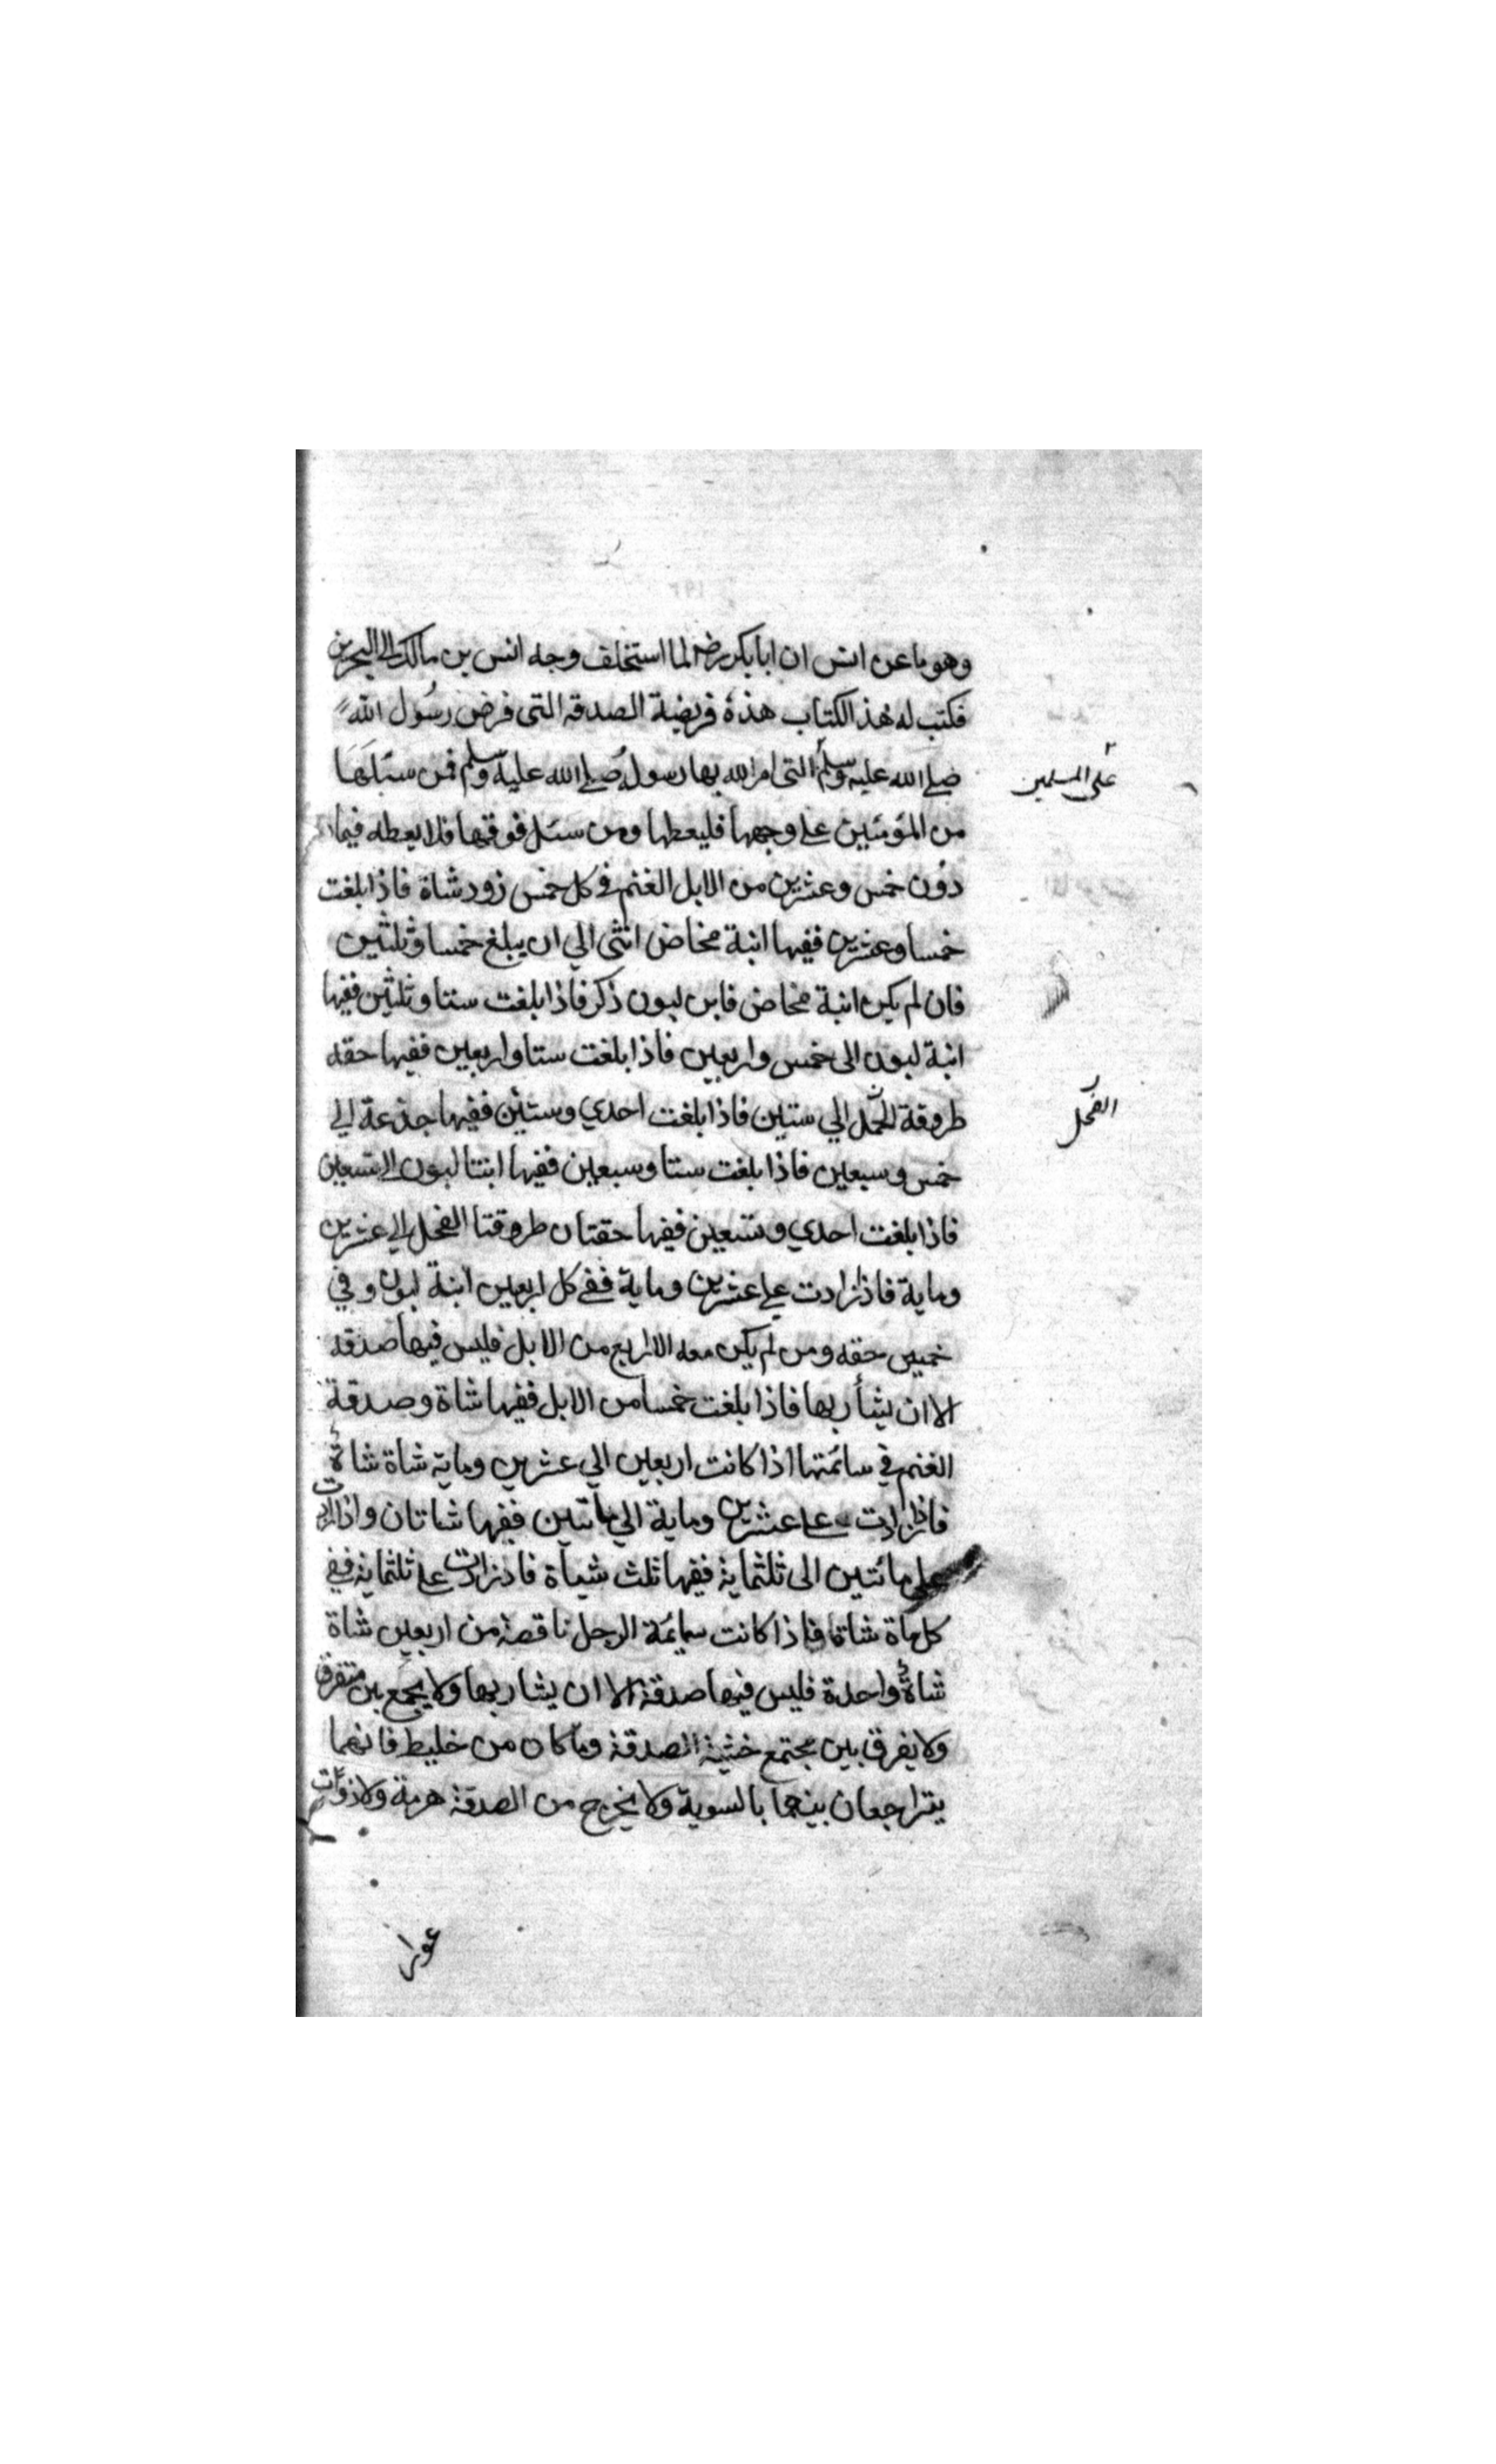 وهو ما عن انس ان ابا بكر رضه لما استخلف وجه انس بن مالك الى البحرين
فكتب له هذ الكتاب هذه فريضة الصدقة التى فرض رسول الله
صلى الله عليه وسلم التى امر الله بها رسوله صلى الله عليه وسلم فمن سئلها
على المسلمين
من المؤمنين على وجهها فليعطها ومن سئل فوقها فلا يعطه فيما
دون خمس وعشرين من الابل الغنم فى كل خمس زود شاة فاذا بلغت
خمسا وعشرين ففيها ابنة مخاض انثى الي ان يبلغ خمسا وثلثين
فان لم يكن ابنة مخاض فابن لبون ذكر فاذا بلغت ستا وثلثين ففيها
ابنة لبون الى خمس واربعين فاذا بلغت ستا واربعين ففيها حقه
طروقة الجمل الي ستين فاذا بلغت احدي وستين ففيها جذعة الي
الفحل
خمس وسبعين فاذا بلغت ستا وسبعين ففيها ابنتا لبون الى تسعين
فاذا بلغت احدي وتسعين ففيها حقتان طروقتا الفحل الي عشرين
وماية فاذا زادت على عشرين وماية ففي كل اربعين ابنة لبون وفي
خميس حقه ومن لم يكن معه الا اربع من الابل فليس فيها صدقه
الا ان يشأ ربها فاذا بلغت خمسا من الابل ففيها شاة وصدقة
الغنم في سائمتها اذا كانت اربعين الي عشرين وماية شاة شاة
فاذا زادت على عشرين وماية الي مأتين ففيها شاتان واذا زادت
على مائتين الى ثلثماية ففيها ثلث شياة فاذا زادت على ثلثماية ففي
كل ماة شاة فاذا كانت سائمة الرجل ناقصة من اربعين شاة
شاة واحدة فليس فيها صدقة الا ان يشا ربها ولا يجمع بين متفرق
ولا يفرق بين مجتمع خشية الصدقة وما كان من خليط فانهما
يتراجعان بينهما بالسوية ولا يخرج من الصدقة هرمة ولا ذوات
عوار